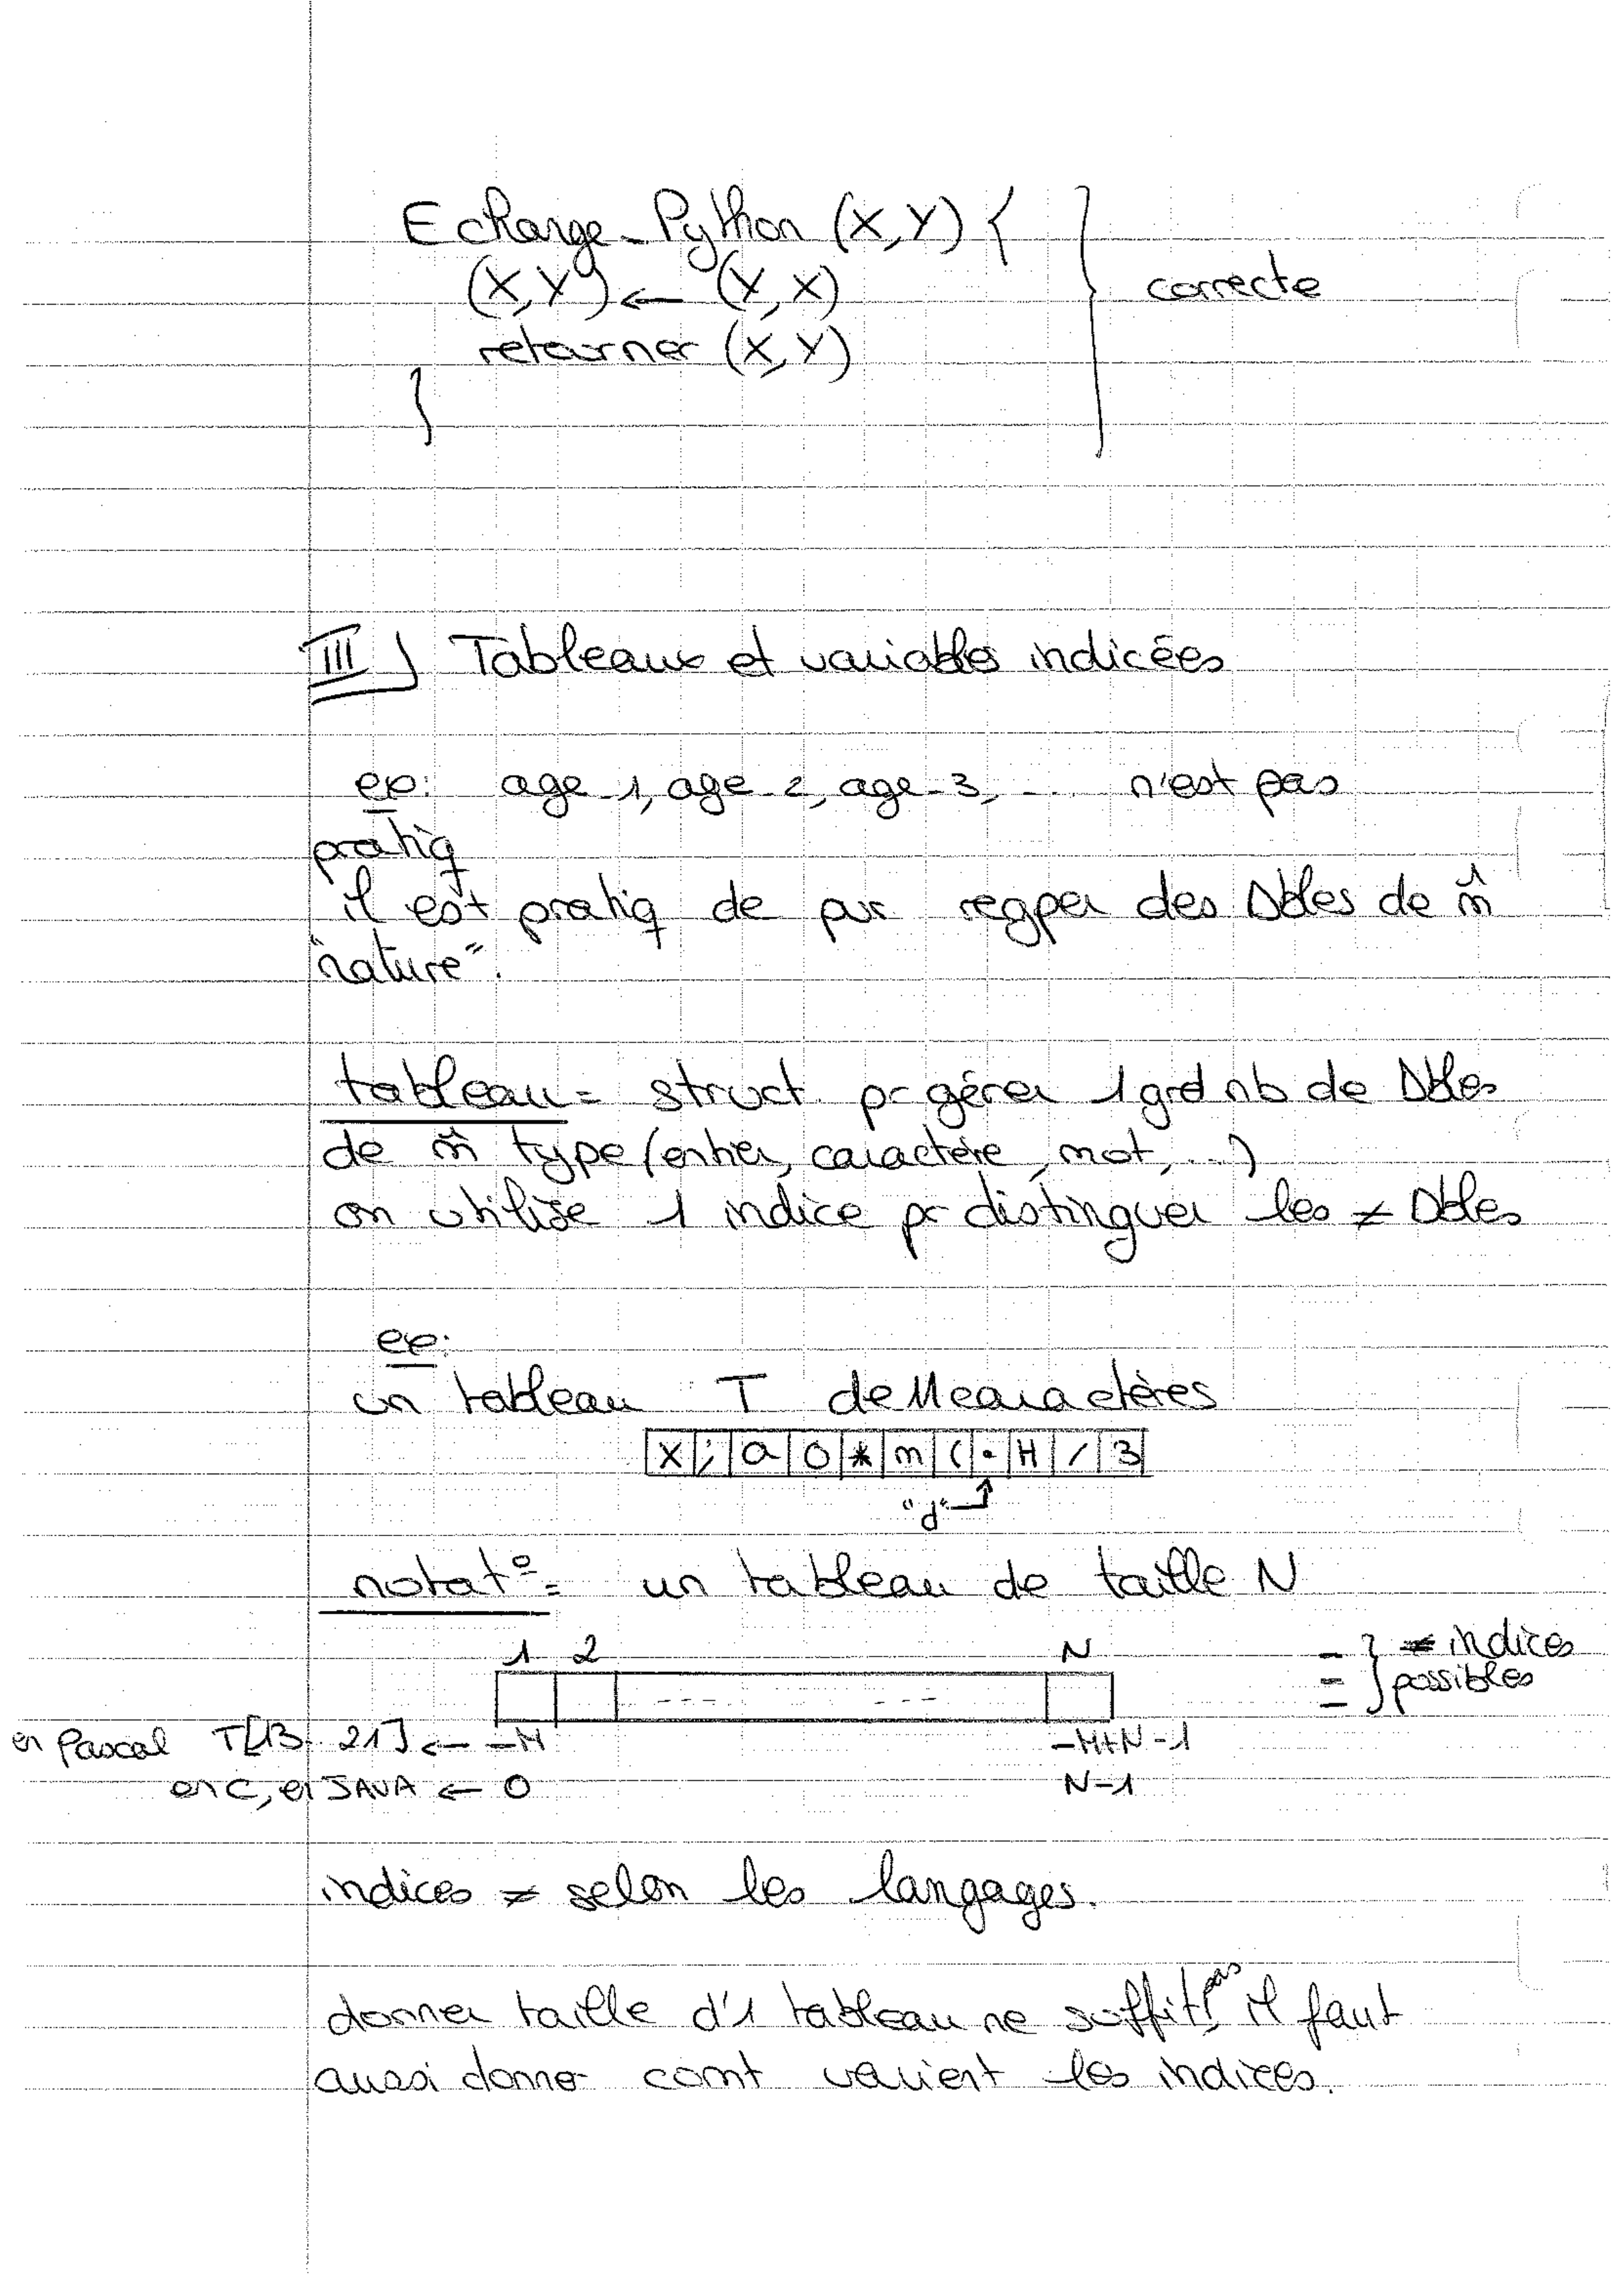 Echange_Python (X,Y) {
(X,Y) ← (Y,X)
retourner (X,Y)
}
} correcte
III) Tableaux et variables indicées
ex: age_1, age_2, age_3, ... n'est pas
pratiq
il est pratiq de pvr regper des Δbles de m̂
"nature".
tableau = struct. pr gérer 1 grd nb de Δbles
de m̂ type (entier, caractère, mot, ...)
on utilise 1 indice pr distinguer les ≠ Δbles
ex:
un tableau T de 11 caractères
X ; a O * m ( • H / 3
"d"
notat° = un tableau de taille N
1 2 N
} ≠ indices
possibles
en Pascal T[13 21] ← -M -M+N-1
en C, en JAVA ← 0 N-1
indices ≠ selon les langages.
donner taille d'1 tableau ne suffit pas! il faut
aussi donner comt varient les indices.